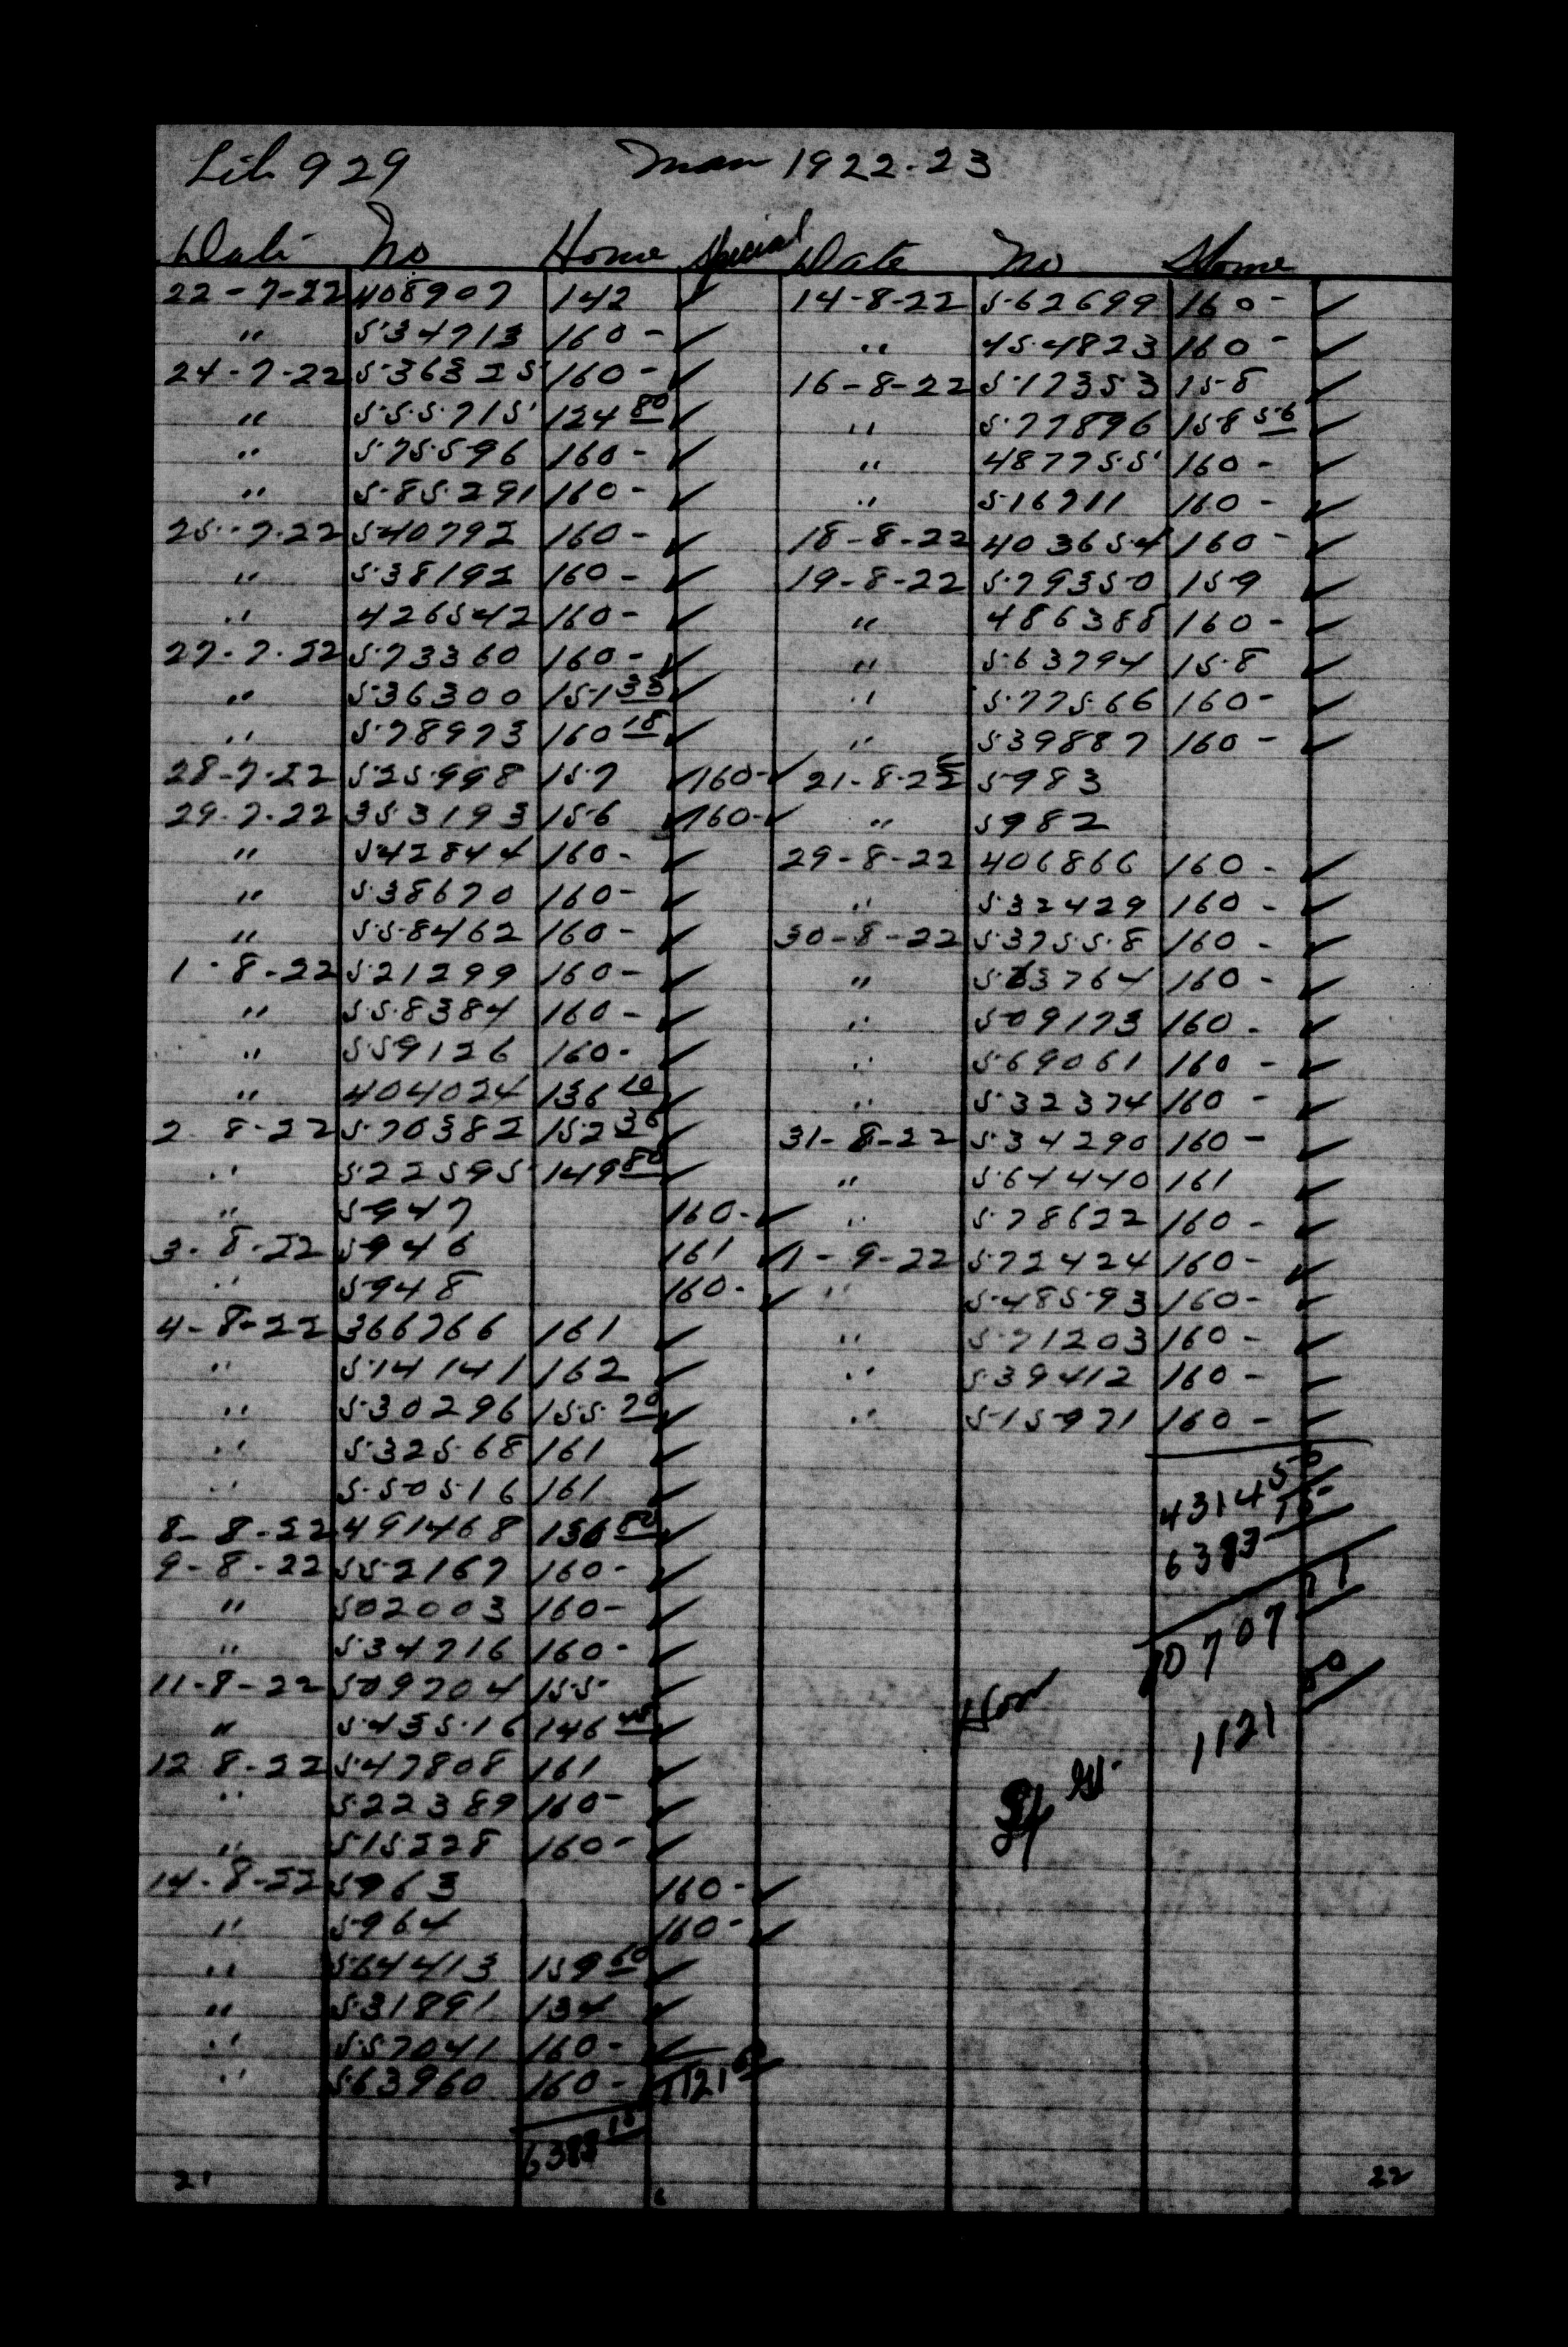 Lib 929 Man 1922-23
Date No Home Special Date No Home
22-7-22 408907 142 ✓
" 534713 160- ✓
24-7-22 536325 160- ✓
" 555715 124 80 ✓
" 575596 160- ✓
" 585291 160- ✓
25-7-22 540792 160- ✓
" 538192 160- ✓
" 426542 160- ✓
27-7-22 573360 160- ✓
" 536300 151 33 ✓
" 578973 160 18 ✓
28-7-22 525998 157 ✓ 160- ✓
29-7-22 353193 156 ✓ 160- ✓
" 542844 160- ✓
" 538670 160- ✓
" 558462 160- ✓
1-8-22 521299 160- ✓
" 558384 160- ✓
" 559126 160- ✓
" 404024 136 10 ✓
2 8-22 570382 152 36 ✓
" 522595 149 80 ✓
" 5947 160- ✓
3-8-22 5946 161 ✓
" 5948 160- ✓
4-8-22 366766 161 ✓
" 514141 162 ✓
" 530296 155 70 ✓
" 532568 161 ✓
" 550516 161 ✓
8-8-22 491468 136 80 ✓
9-8-22 552167 160- ✓
" 502003 160- ✓
" 534716 160- ✓
11-8-22 509704 155 ✓
" 543516 146 45 ✓
12 8-22 547808 161 ✓
" 522389 160- ✓
" 515228 160- ✓
14-8-22 5963 160- ✓
" 5964 160- ✓
" 564413 159 60 ✓
" 531891 134 ✓
" 557041 160- ✓
" 563960 160- 1121
21
14-8-22 562699 160- ✓
" 454823 160- ✓
16-8-22 517353 158 ✓
" 577896 158 56 ✓
" 487755 160- ✓
" 516711 160- ✓
18-8-22 403654 160- ✓
19-8-22 579350 159 ✓
" 486388 160- ✓
" 563794 158 ✓
" 577566 160- ✓
" 539887 160- ✓
21-8-22 5983
" 5982
29-8-22 406866 160- ✓
" 532429 160- ✓
30-8-22 537558 160- ✓
" 563764 160- ✓
" 509173 160- ✓
" 569061 160- ✓
" 532374 160- ✓
31-8-22 534290 160- ✓
" 564440 161 ✓
" 578622 160- ✓
1-9-22 572424 160- ✓
" 548593 160- ✓
" 571203 160- ✓
" 539412 160- ✓
" 515971 160- ✓
4314
6393
10707
Hom
1121
22